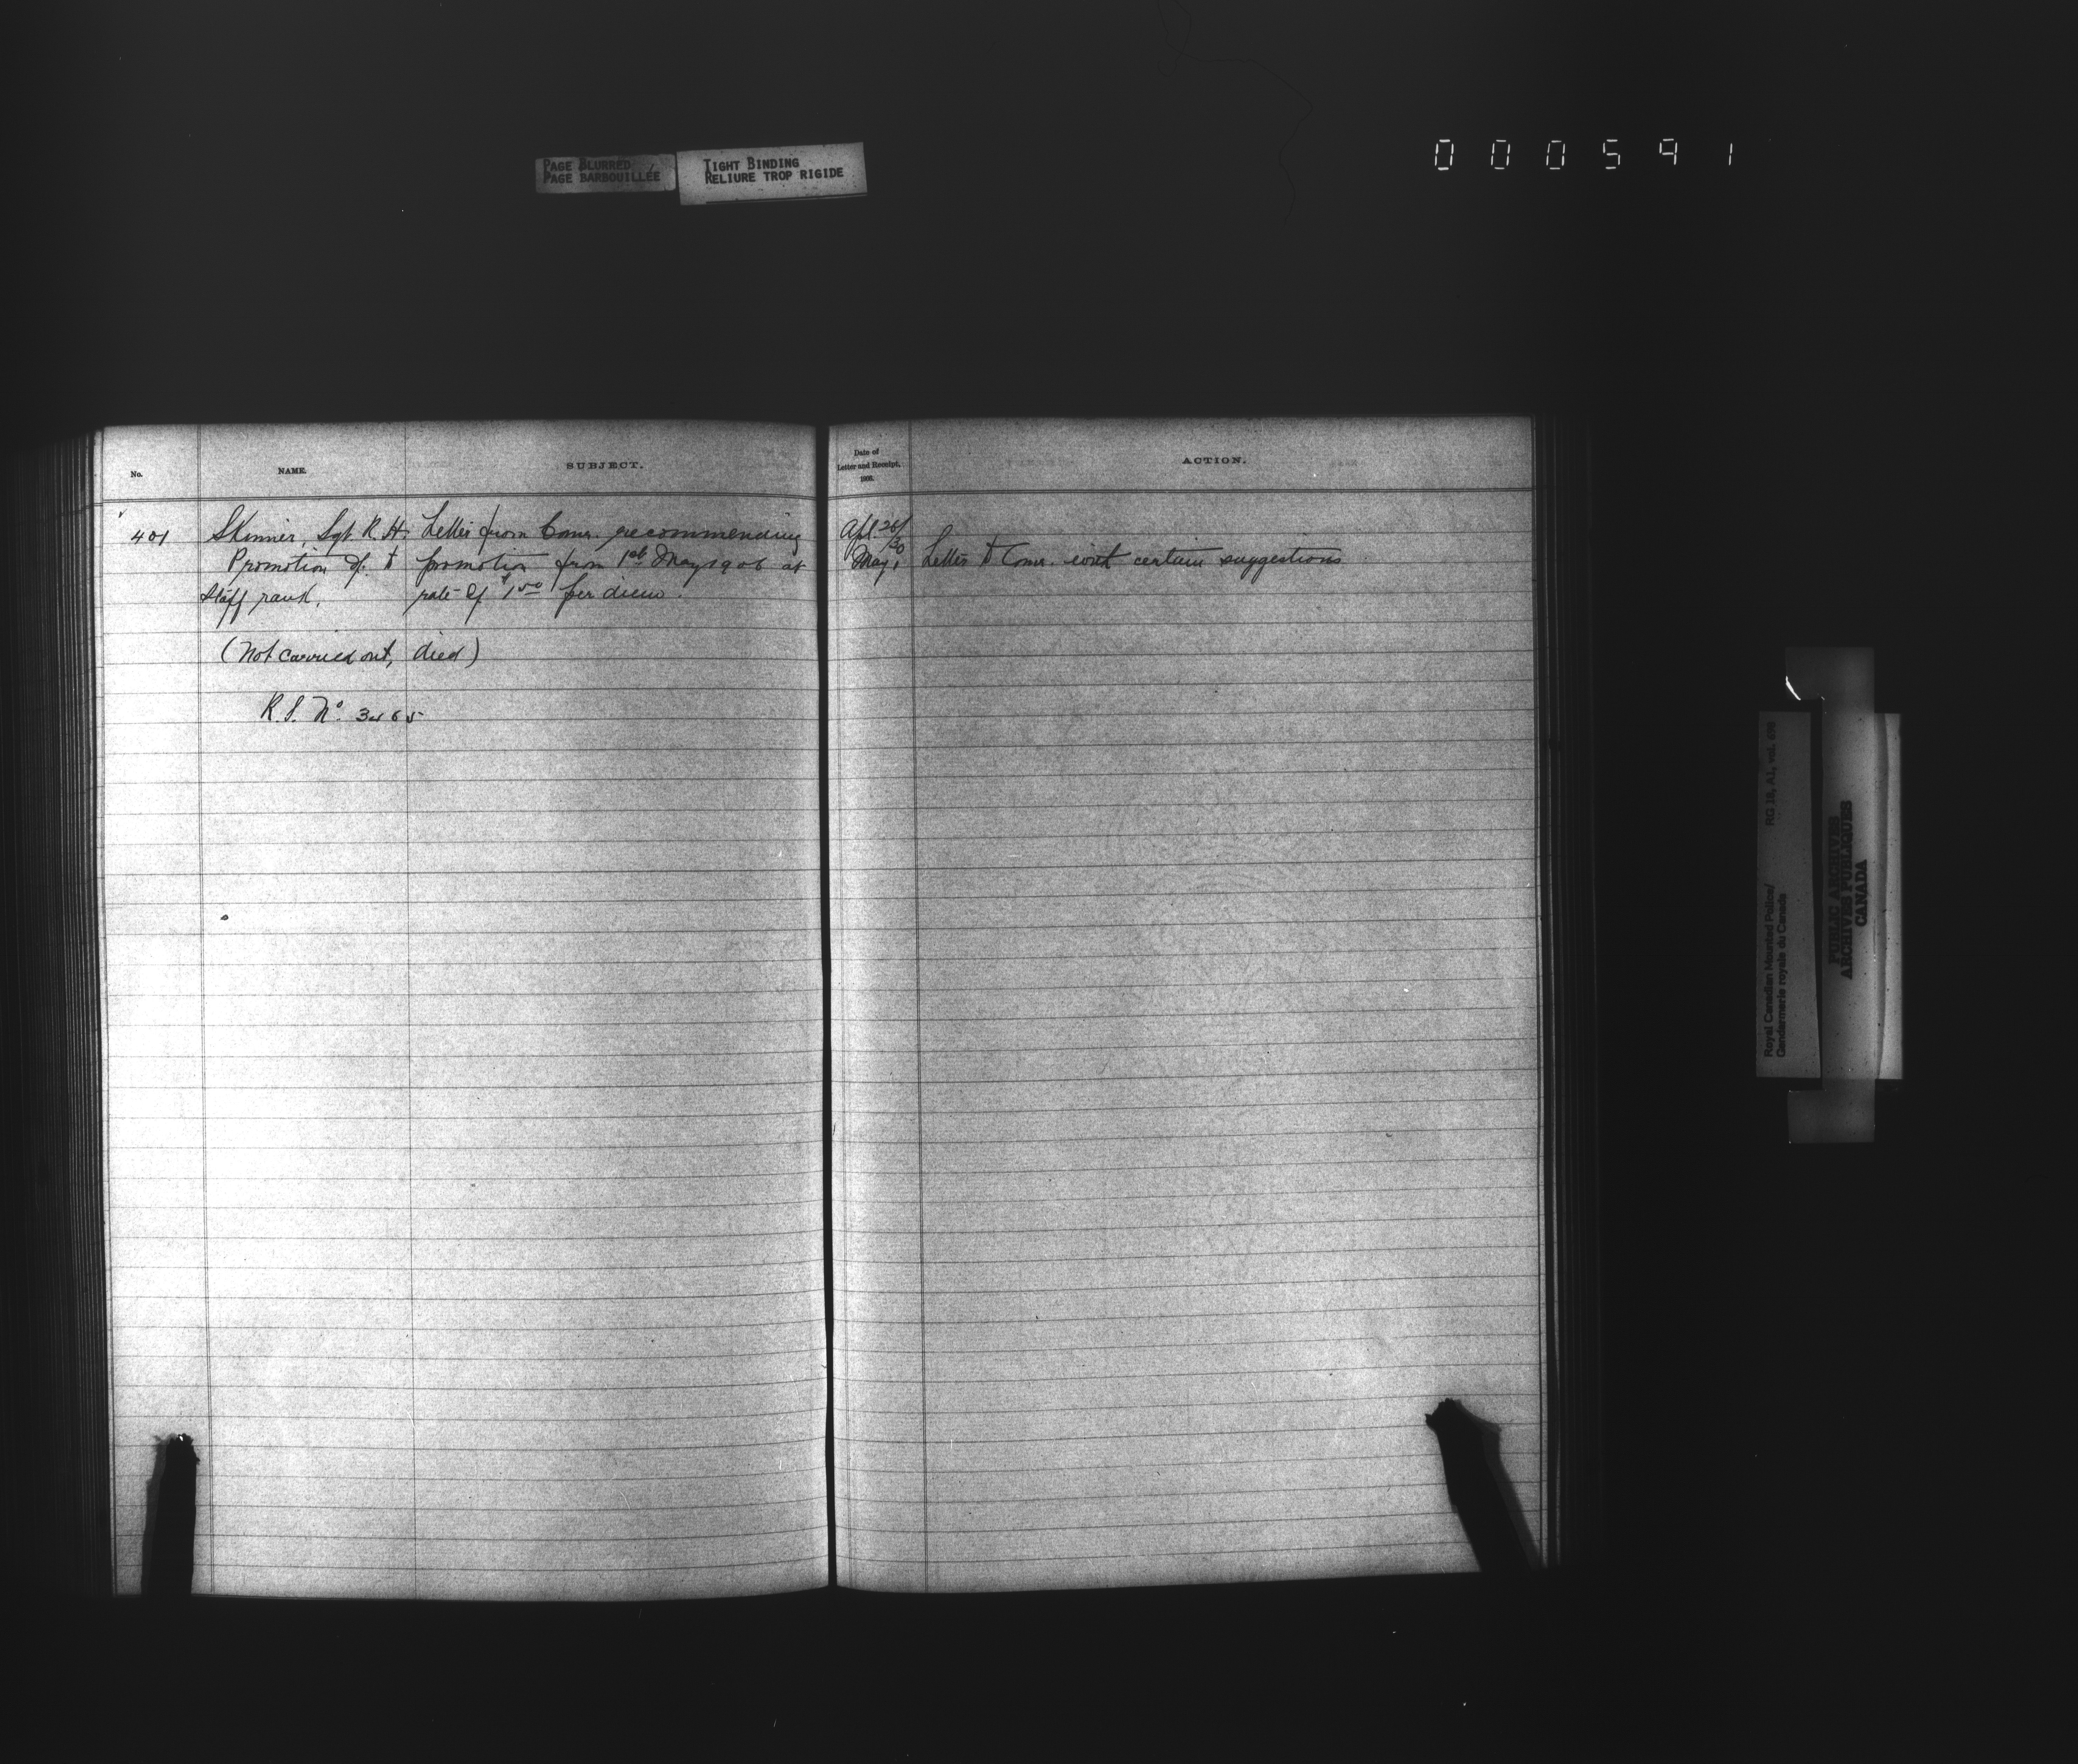 PAGE BLURRED
PAGE BARBOUILLÉE
TIGHT BINDING
RELIURE TROP RIGIDE
000591
No.
NAME.
SUBJECT.
401
Skinner, Sgt R. H.
Promotion of. to
Staff rank.
Letter from Comr. recommending
promotion from 1st May 1906 at
rate of $1.50 per diem.
(Not carried out, died)
R.S. No. 3465
Date of
Letter and Receipt,
1906.
ACTION.
Apl. 26/30
May 1
Letter to Comr. with certain suggestions
Royal Canadian Mounted Police/
Gendarmerie royale du Canada
RG 18, A1, vol.
PUBLIC ARCHIVES
ARCHIVES PUBLIQUES
CANADA